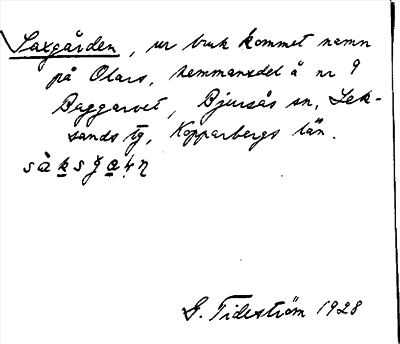 Saxgården, ur bruk kommet namn
på Olars, hemmansdel å nr 9
Baggarvet, Bjursås sn, Lek-
sands tg, Kopparbergs län.
G. Tideström 1928